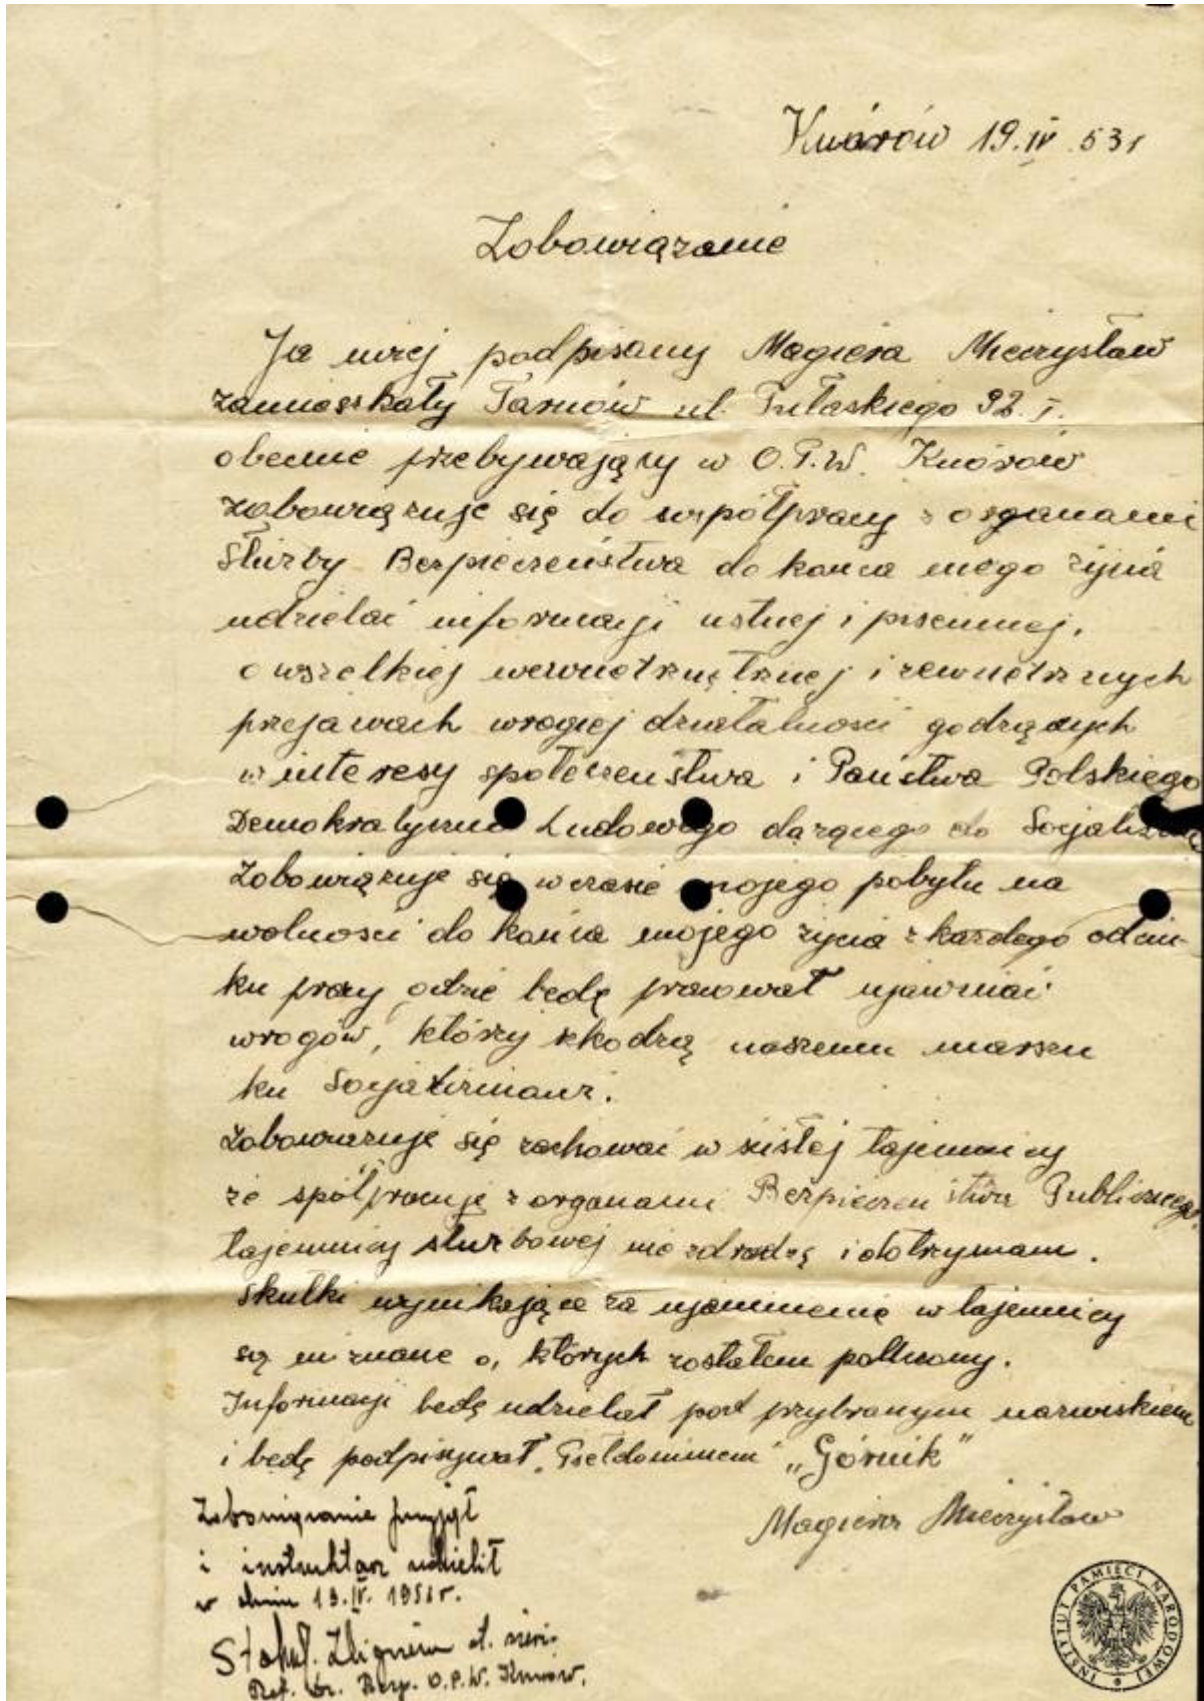 Knurów 19.IV.53r
Zobowiązanie
Ja niżej podpisany Magiera Mieczysław
zamieszkały Tarnów ul. Pułaskiego 92. I.
obecnie przebywający w O.P.W. Knurów
zobowiązuje się do współpracy z organami
Służby Bezpieczeństwa do końca mego życia
udzielać informacji ustnej i pisemnej.
o wszelkiej i zewnętrznych
przejawach wrogiej działalności godzących
w interesy społeczeństwa i Państwa Polskiego
Ludowego dążącego do
Zobowiązuje się w czasie mojego pobytu na
wolności do końca mojego życia z każdego odcin-
ku pracy gdzie będę pracował ujawniać
wrogów, którzy szkodzą naszemu marszu
ku Socjalizmowi.
Zobowiazuje się zachować w ścisłej tajemnicy
że spółpracuje z organami Bezpieczeństwa Publicznego
tajemnicy służbowej nie zdradzę i dotrzymam.
Skutki wynikające za ujawnienie w tajemnicy
są mi znane o, których zostałem pouczony.
Informacji będę udzielał pod przybranym nazwiskiem
i będę podpisywał „Górnik"
Magiera Mieczysław
Zobowiązanie przyjął
i instruktarz udzielił
w dniu 19.IV.
Zbigniew st. sierż.
Ref. Bezp. O.P.W. Knurów.
INSTYTUT PAMIĘCI NARODOWEJ